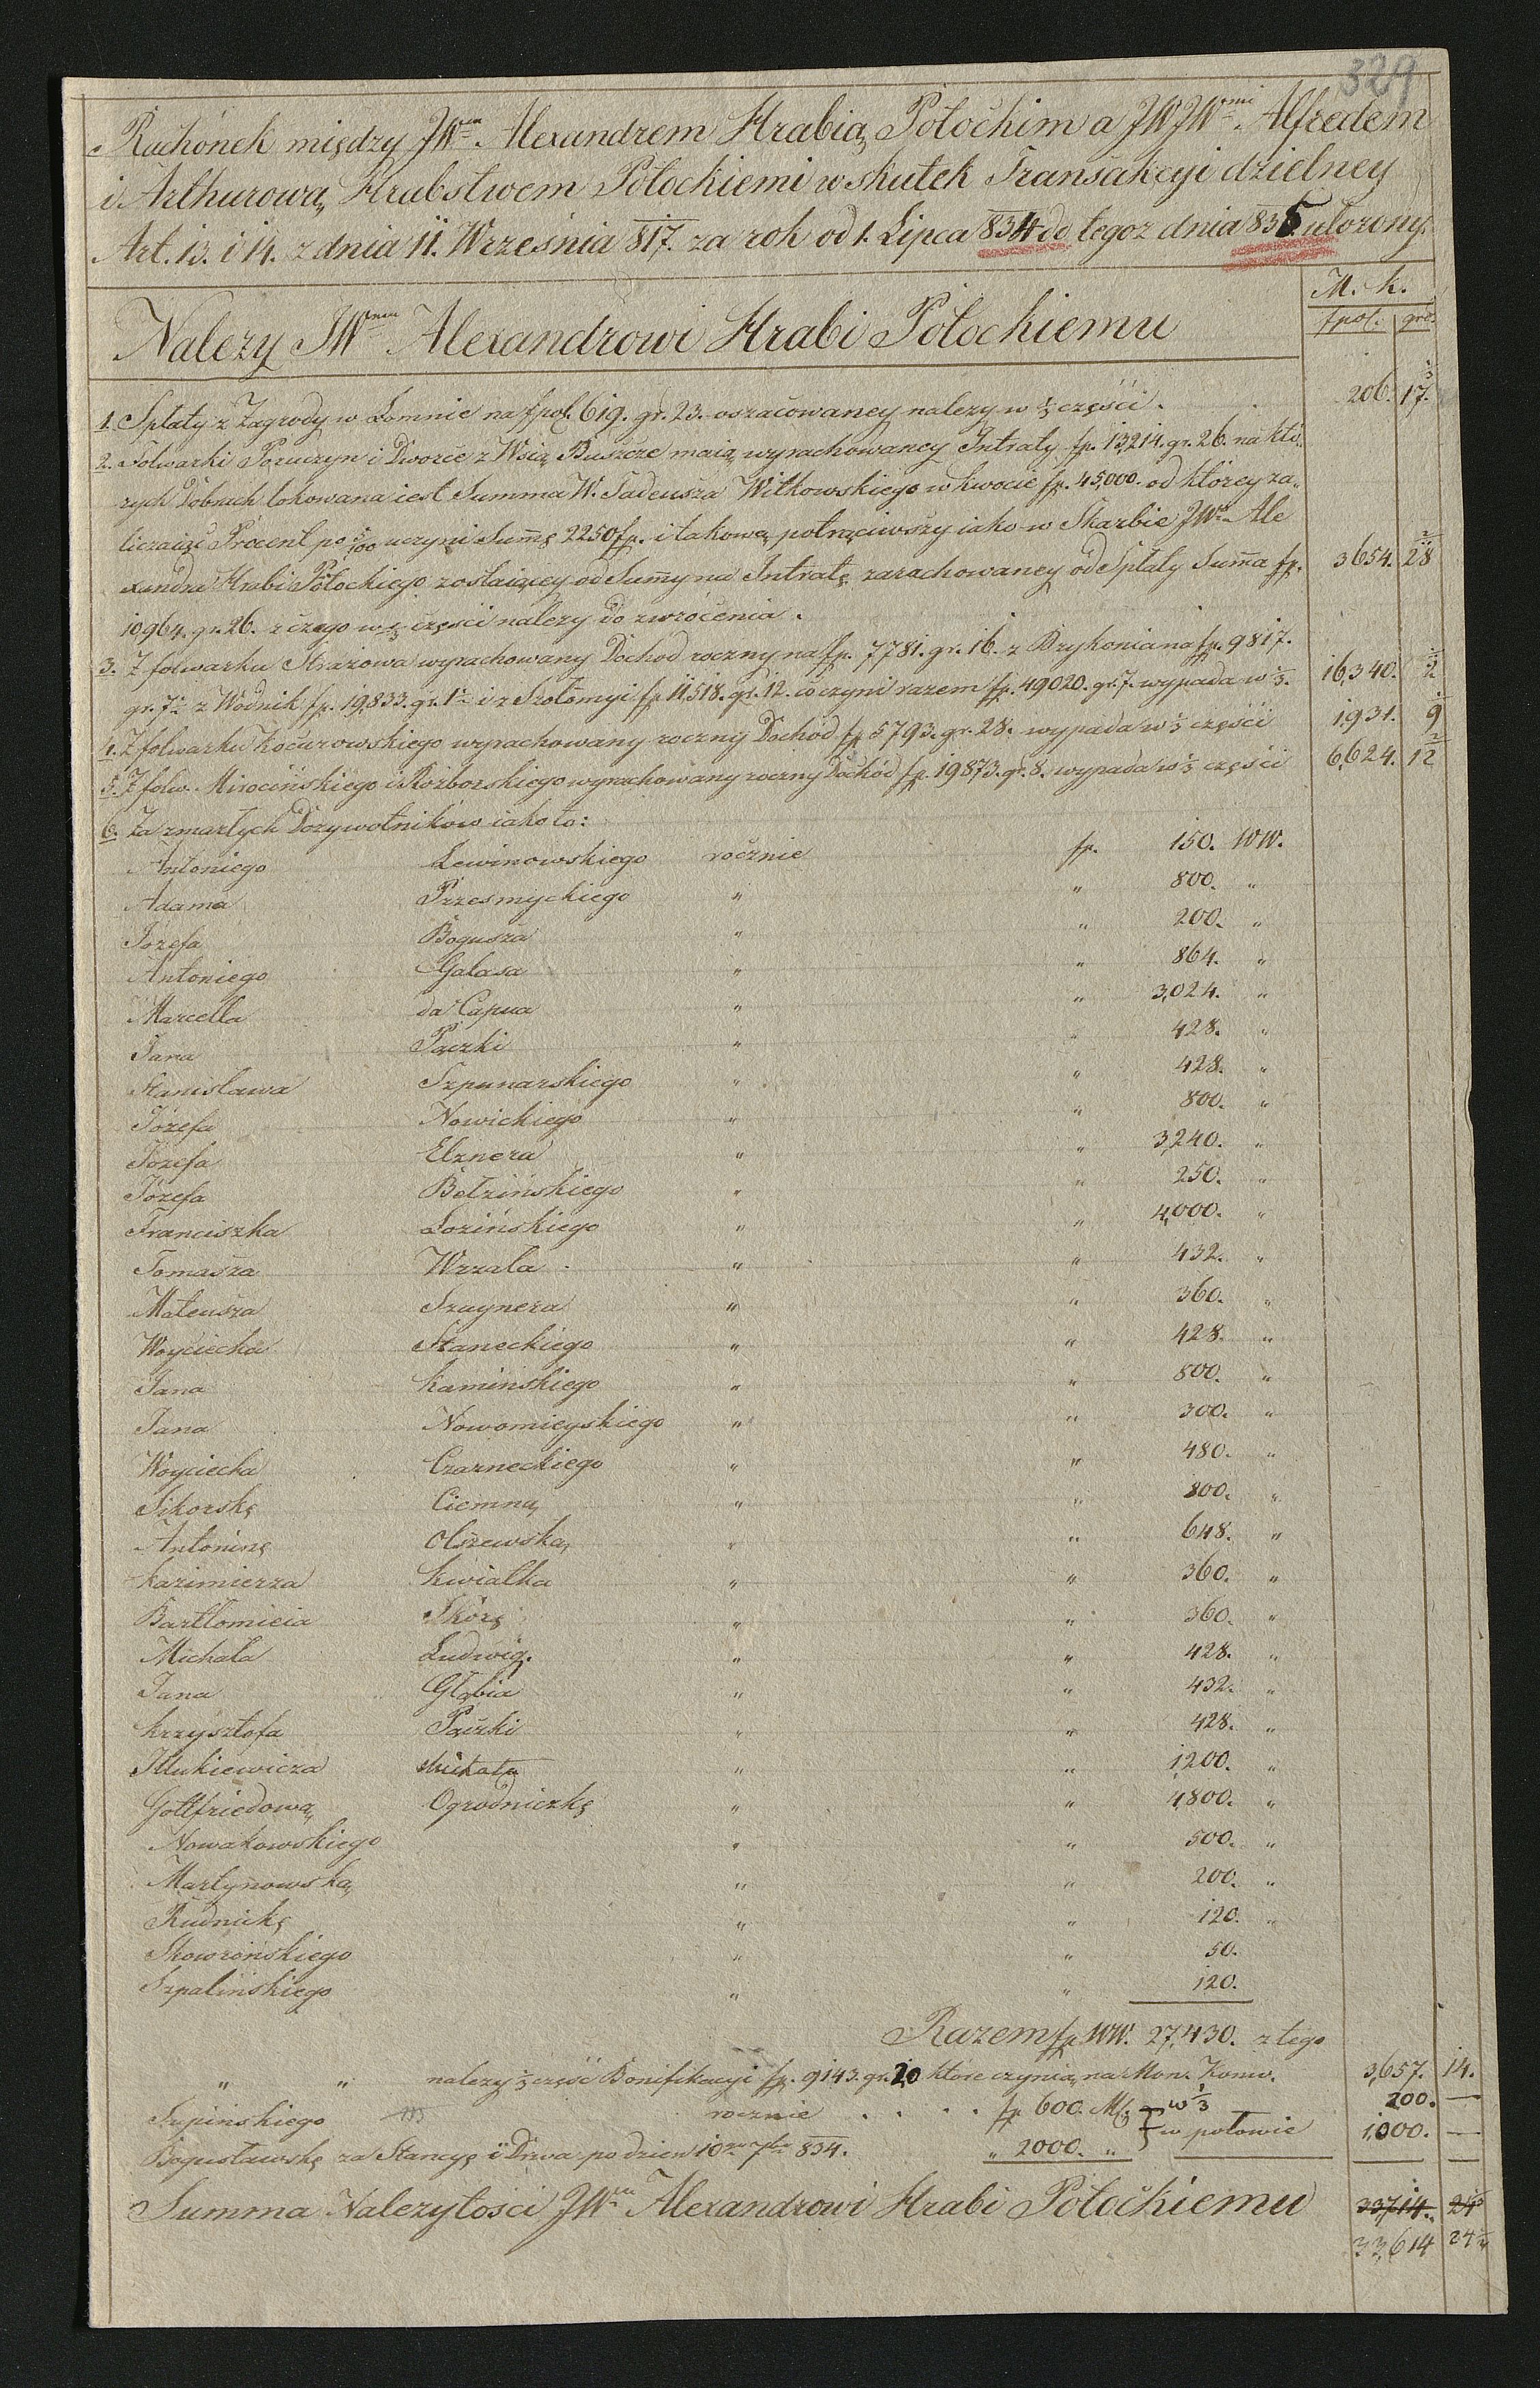 329
Rachónek między JWm. Alexandrem Hrabią Potockim a JWJWmi. Alfredem
i Arthurową Hrabstwem Potockiemi w skutek Transakcyi dzielney
Art. 13. i 14. z dnia 11. Września 817. za rok od 1. Lipca 834 do tegoz dnia 835 ulozony.
M. k.
Nalezy JWmu Alexandrowi Hrabi Potockiemu
fpol. gro.
1. Splaty z Zagrody w Lomnie na fpol. 619. gr. 23. oszacowaney nalezy w ⅓ części . 206. 17.
2. Folwarki Poruczyn i Dworce z Wsią Buszcze maią wyrachowaney Intraty fp. 13,214. gr. 26. na któ„
rych Dobrach lokowana iest Summa W. Tadeusza Witkowskiego w kwocie fp. 45,000. od którey za„
liczaiąc Procent po 5/100 uczyni Summę 2250 fp. i takową potrąciwszy iako w Skarbie JWo Ale
xandra Hrabi Potockiego zostaiącey od Summy na Intratę zarachowaney od Splaty Summa fp. 3654. 28
10,964. gr. 26. z czego w ⅓ części nalezy do zwrócenia .
3. Z folwarku Strazowa wyrachowany Dochod roczny na fp. 7781. gr. 16. z Brykonia na fp. 9817.
gr. 7 z Wodnik fp. 19,833. gr. 1 i z Szołomyi fp 11,518. gr. 12. co czyni razem fp. 49020. gr. 7. wypada w ⅓. 16,340. 2
4. Z folwarku Kocurowskiego wyrachowany roczny Dochód fp 5793. gr. 28. wypada w ⅓ części 1,931. 9
5. Z folw. Mirocińskiego i Rozborskiego wyrachowany roczny Dochód fp. 19873. gr. 8. wypada w ⅓ części 6,624. 12
6. Za zmarłych Dozywotników iako to:
Antoniego Lewinowskiego rocznie fp. 150. WW.
Adama Przesmyckiego „ „ 800. „
Józefa Bogusza „ „ 200. „
Antoniego Galasa „ „ 864. „
Marcella da Capua „ „ 3,024. „
Jana Pączki „ „ 428. „
Stanisława Szpunarskiego „ „ 428. „
Józefa Nowickiego „ „ 800. „
Józefa Elznera „ „ 3,240. „
Józefa Betzińskiego „ „ 250. „
Franciszka Lozińskiego „ „ 4,000. „
Tomasza Wrzala „ „ 432. „
Mateusza Szuynera „ „ 360. „
Woyciecha Staneckiego „ „ 428. „
Jana Kaminskiego „ „ 800. „
Jana Nowomieyskiego „ „ 300. „
Woyciecha Czarneckiego „ „ 480. „
Sikorskę Ciemną „ „ 800. „
Antoninę Olszewską „ „ 648. „
Kazimierza Kwiatka „ „ 360. „
Bartłomieia Skórę „ „ 360. „
Michała Ludwig. „ „ 428. „
Jana Głąbia „ „ 432. „
Krzysztofa Pączki „ „ 428. „
Illukiewicza Michała „ „ 1,200. „
Gottfriedową Ogrodniczkę „ „ 4,800. „
Nowakowskiego „ „ 500. „
Martynowską „ „ 200. „
Rudnickę „ „ 120. „
Skowrońskiego „ „ 50.
Szpalińskiego „ „ 120.
Razem fp WW. 27,430. z tego
„ „ nalezy ⅓ część Bonifikacyi fp. 9143. gr. 10 które czynią na Mon. Konw. 3,657. 14.
Supińskiego rocznie . . . . fp 600. Mk. } w ⅓ 200. —
Bogusławskę za Stancyę i Drwa po dzien 10 7br 834. „ 2000. „ } w połowie 1,000. —
Summa Nalezytości JWmu Alexandrowi Hrabi Potockiemu 33714. 24
33,614 24